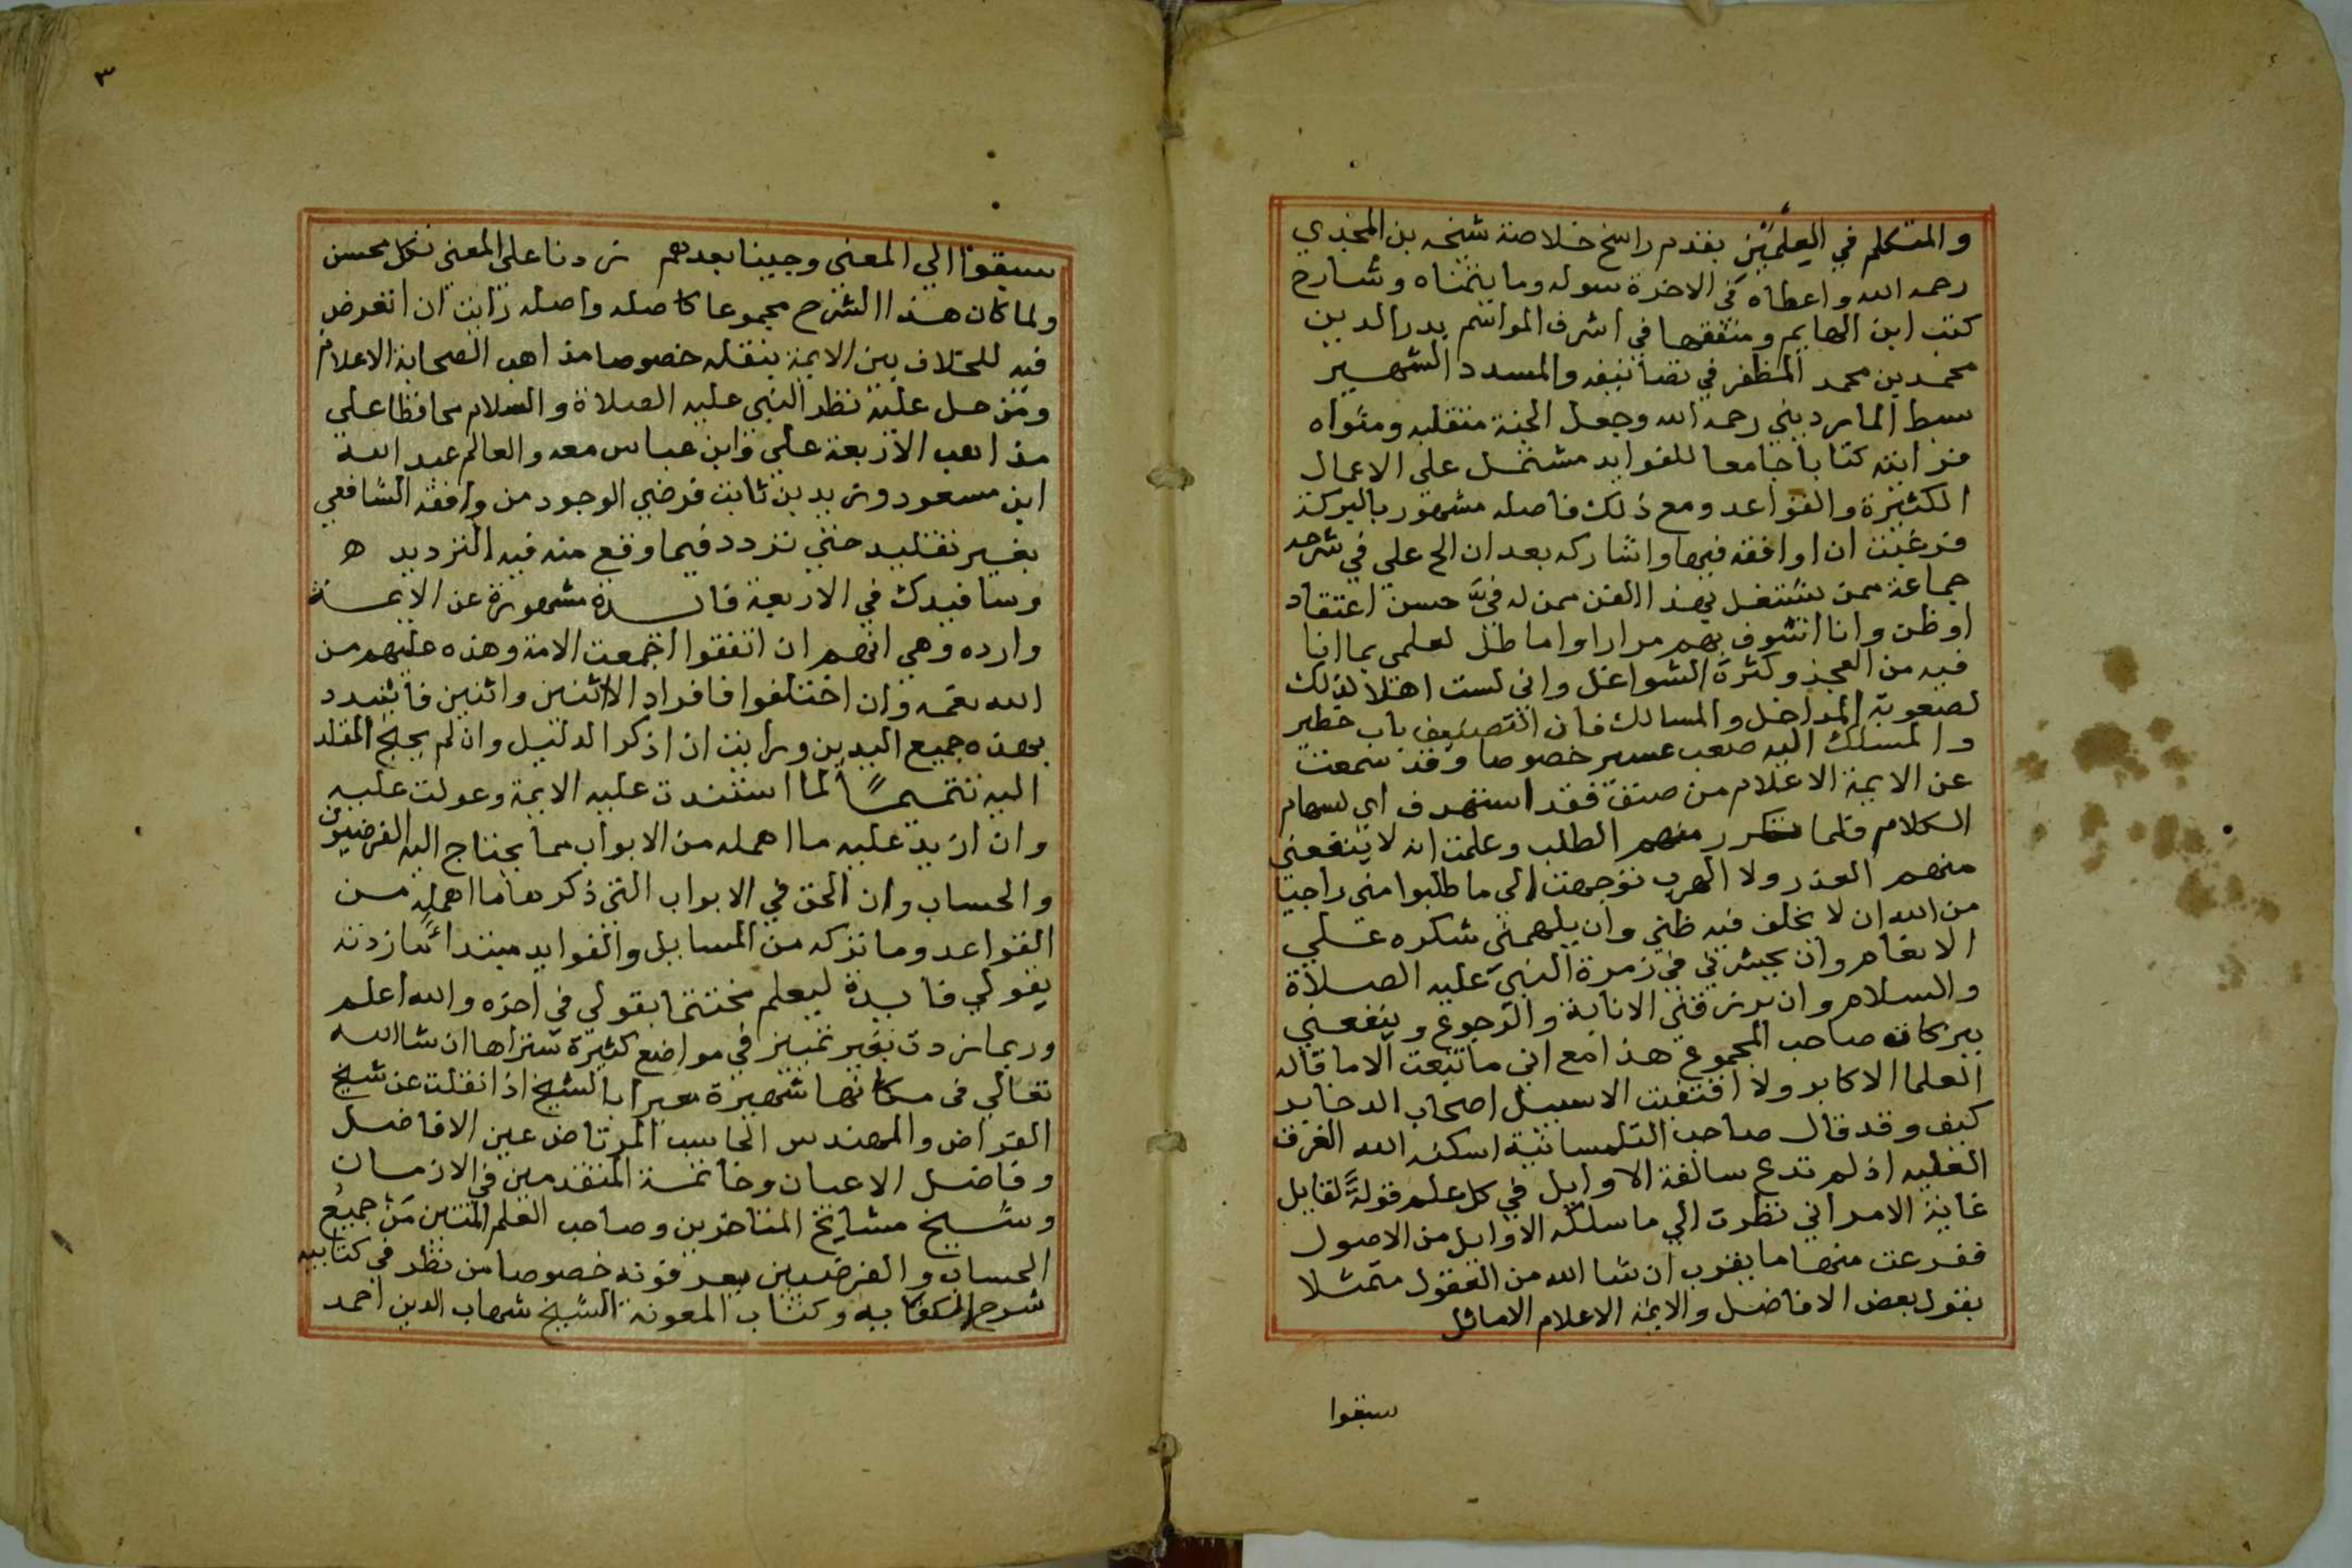 والمتكلم في العلمين بقدم راسخ خلاصة شيخه بن المجدي
رحمه الله واعطاه في الاخرة سوله وما يتمناه وشارح
كتب ابن الهايم ومنفقها في اشرف المواسم بدر الدين
محمد بن محمد المظفر في تصانيفه والمسدد الشهير
سبط المارديني رحمه الله وجعل الجنة منقلبه ومثواه
فرايته كتابا جامعا للفوايد مشتمل على الاعمال
الكثيرة والقواعد ومع ذلك فاصله مشهور بالبركة
فرغبت ان اوافقه فيها واشاركه بعد ان الح علي في شرحه
جماعة ممن يشتغل بهذا الفن ممن له فيَّ حسن اعتقاد
او ظن وانا اسوف بهم مرارا واماطل لعلمي بما انا
فيه من العجز وكثرة الشواغل واني لست اهلا لذلك
لصعوبة المداخل والمسالك فان التصنيف باب خطير
والمسلك اليه صعب عسير خصوصا وقد سمعت
عن الايمة الاعلام من صنف فقد استهدف اي لسهام
الكلام فلما تكرر منهم الطلب وعلمت انه لا ينفعني
منهم العذر ولا الهرب توجهت الى ما طلبوا مني راجيا
من الله ان لا يخلف فيه ظني وان يلهمني شكره علي
الانعام وان يحشرني في زمرة النبي عليه الصلاة
والسلام وان يرزقني الانابة والرجوع وينفعني
ببركات صاحب المجموع هذا مع اني ما تبعت الا ما قاله
العلما الاكابر ولا اقتفيت الا سبيل اصحاب الدخاير
كيف وقد قال صاحب التلمسانية اسكنه الله الغرف
العليه اذ لم تدع سالفة الاوايل في كل علم قولةً لقايل
غاية الامر اني نظرت الي ما سلكه الاوايل من الاصول
ففرعت منها ما يقرب ان شا الله من العقول متمثلا
بقول بعض الافاضل والايمة الاعلام الاماثل
سبقوا
٣
سبقونا الي المعني وجينا بعدهم زدنا علي المعني فكل محسن
ولما كان هذا الشرح مجموعا كاصله واصله رايت ان اتعرض
فيه للخلاف بين الايمة بنقله خصوصا مذاهب الصحابة الاعلام
ومن حل عليه نظر النبي عليه الصلاة والسلام محافظا علي
مذاهب الاربعة علي وابن عباس معه والعالم عبد الله
ابن مسعود وزيد بن ثابت فرضي الوجود من وافقه الشافعي
بغير تقليد حتي تردد فيما وقع منه فيه الترديد ه
وسافيدك في الاربعة فايدة مشهورة عن الايمة
وارده وهي انهم ان اتفقوا اجمعت الامة وهذه عليهم من
الله نعمه وان اختلفوا فافراد الاثنين واثنين فاشدد
بهذه جميع اليدين ورايت ان اذكر الدليل وان لم يحتج المقلد
اليه تتميمًا لما استندت عليه الايمة وعولت عليه
وان ازيد عليه ما اهمله من الابواب مما يحتاج اليه الفرضيون
والحساب وان الحق في الابواب التي ذكرها ما اهمله من
القواعد وما تركه من المسايل والفوايد مبتدائا ما زدته
بقولي فايدة ليعلم مختتما بقولي في اخره والله اعلم
وربما زدت بغير تمييز في مواضع كثيرة ستراها ان شا الله
تعالي في مكانها شهيرة معبرا بالشيخ اذا نقلت عن شيخ
القراض والمهندس الحاسب المرتاض عين الافاضل
وفاضل الاعيان وخاتمة المتقدمين في الازمان
وشيخ مشايخ المتاخرين وصاحب العلم المتين مَن جميعُ
الحساب والفرضيين يعرفونه خصوصا من نظر في كتابيه
شرح الكفايه وكتاب المعونة الشيخ شهاب الدين احمد